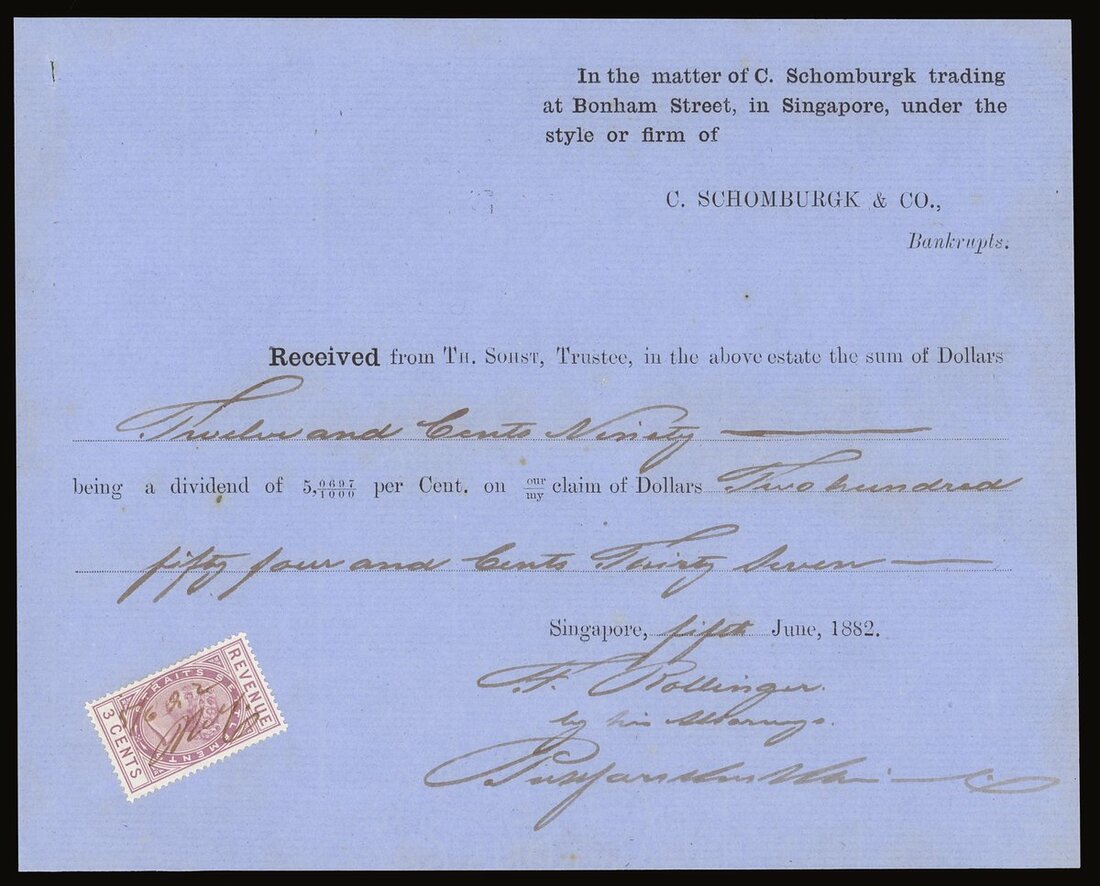 In the matter of C. Schomburgk trading
at Bonham Street, in Singapore, under the
style or firm of
C. SCHOMBURGK & CO.,
Bankrupts.
Received from TH. SOHST, Trustee, in the above estate the sum of Dollars
Twelve and Cents Ninety
being a dividend of 5,0697/1000 per Cent. on our/my claim of Dollars Two hundred
fifty four and Cents Thirty Seven
Singapore, fifth June, 1882.
F. Rollinger.
by his Attorneys.
REVENUE
STRAITS SETTLEMENTS
3 CENTS